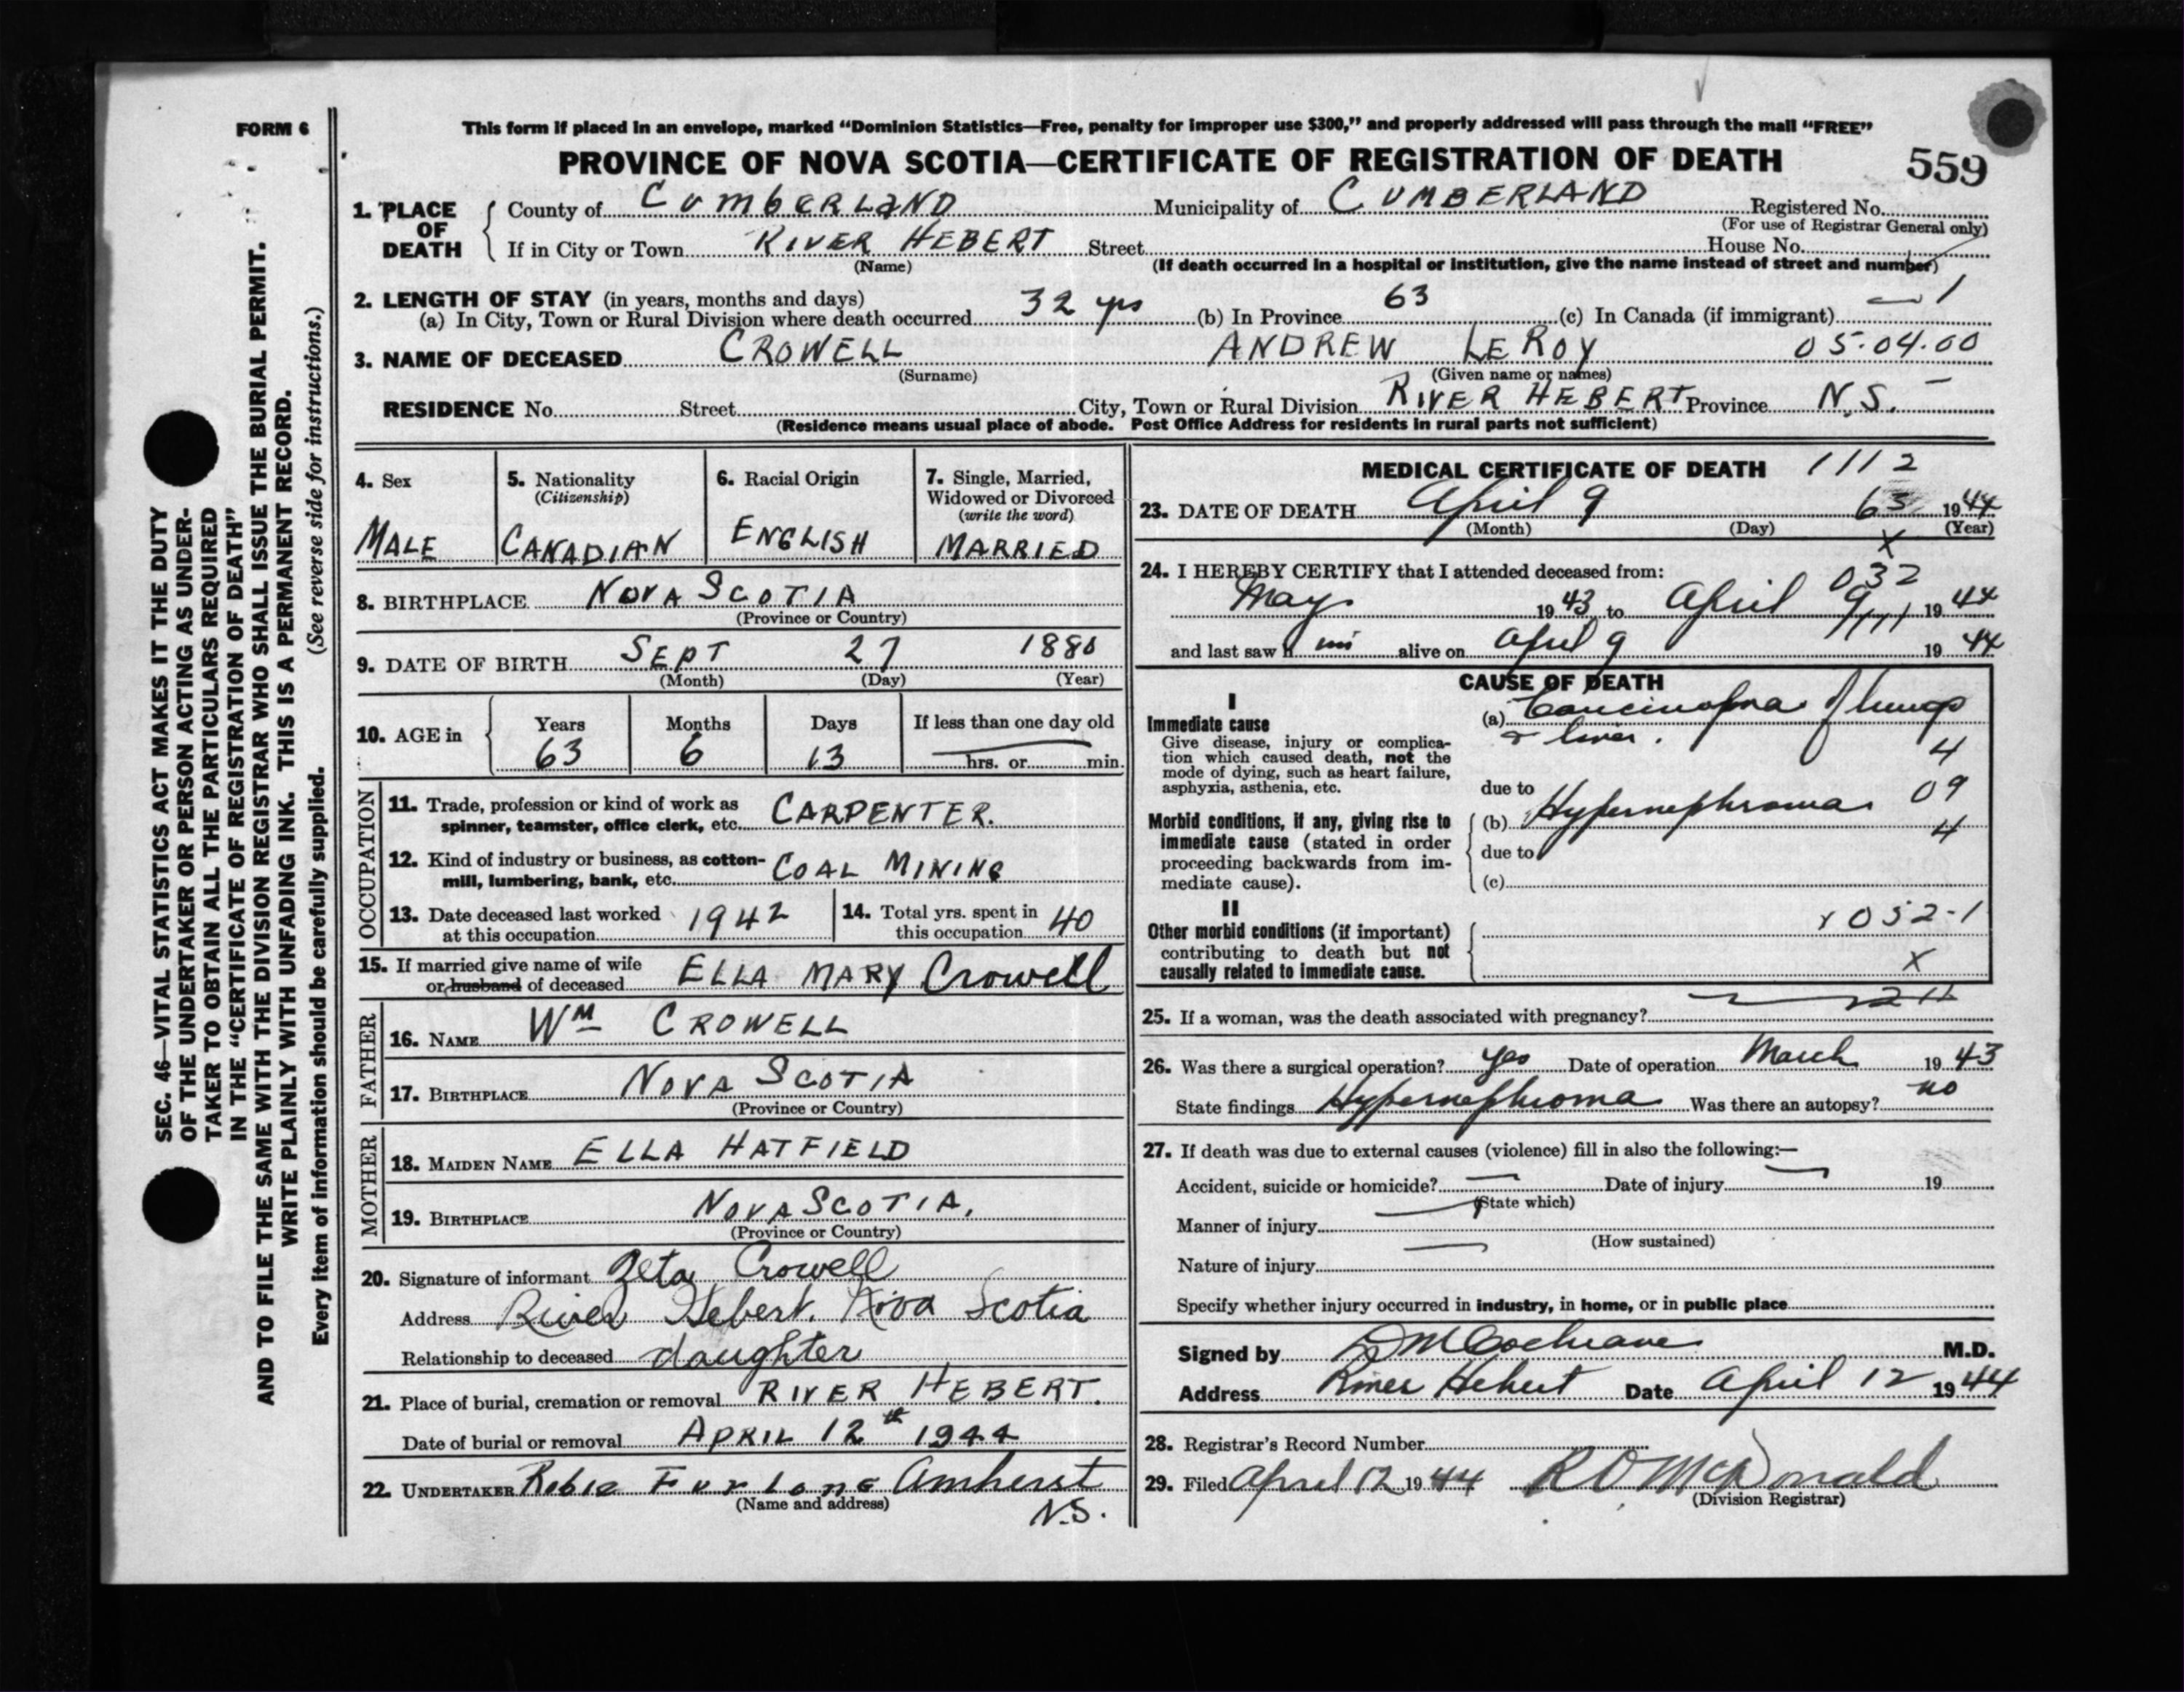 FORM 6
This form if placed in an envelope, marked "Dominion Statistics—Free, penalty for improper use $300," and properly addressed will pass through the mail "FREE"
PROVINCE OF NOVA SCOTIA—CERTIFICATE OF REGISTRATION OF DEATH 559
SEC. 46—VITAL STATISTICS ACT MAKES IT THE DUTY
OF THE UNDERTAKER OR PERSON ACTING AS UNDER-
TAKER TO OBTAIN ALL THE PARTICULARS REQUIRED
IN THE "CERTIFICATE OF REGISTRATION OF DEATH"
AND TO FILE THE SAME WITH THE DIVISION REGISTRAR WHO SHALL ISSUE THE BURIAL PERMIT.
WRITE PLAINLY WITH UNFADING INK. THIS IS A PERMANENT RECORD.
Every item of information should be carefully supplied. (See reverse side for instructions.)
1. PLACE OF DEATH
County of CUMBERLAND Municipality of CUMBERLAND Registered No.
(For use of Registrar General only)
If in City or Town RIVER HEBERT Street House No.
(Name) (If death occurred in a hospital or institution, give the name instead of street and number)
2. LENGTH OF STAY (in years, months and days)
(a) In City, Town or Rural Division where death occurred 32 yrs (b) In Province 63 (c) In Canada (if immigrant) — 1
3. NAME OF DECEASED CROWELL ANDREW LEROY 05.04.00
(Surname) (Given name or names)
RESIDENCE No. Street City, Town or Rural Division RIVER HEBERT Province N.S.
(Residence means usual place of abode. Post Office Address for residents in rural parts not sufficient)
4. Sex MALE
5. Nationality (Citizenship) CANADIAN
6. Racial Origin ENGLISH
7. Single, Married, Widowed or Divorced (write the word) MARRIED
8. BIRTHPLACE NOVA SCOTIA
(Province or Country)
9. DATE OF BIRTH SEPT 27 1880
(Month) (Day) (Year)
10. AGE in Years Months Days If less than one day old
63 6 13 hrs. or min.
OCCUPATION
11. Trade, profession or kind of work as
spinner, teamster, office clerk, etc. CARPENTER.
12. Kind of industry or business, as cotton-
mill, lumbering, bank, etc. COAL MINING
13. Date deceased last worked at this occupation 1942
14. Total yrs. spent in this occupation 40
15. If married give name of wife
or husband of deceased ELLA MARY Crowell
FATHER
16. NAME WM CROWELL
17. BIRTHPLACE NOVA SCOTIA
(Province or Country)
MOTHER
18. MAIDEN NAME ELLA HATFIELD
19. BIRTHPLACE NOVA SCOTIA.
(Province or Country)
20. Signature of informant Zeta Crowell
Address River Hebert. Nova Scotia
Relationship to deceased daughter
21. Place of burial, cremation or removal RIVER HEBERT.
Date of burial or removal APRIL 12th 1944
22. UNDERTAKER Robie Furlong Amherst
(Name and address) N.S.
MEDICAL CERTIFICATE OF DEATH 1112
23. DATE OF DEATH April 9 63 1944
(Month) (Day) (Year)
x
24. I HEREBY CERTIFY that I attended deceased from: 032
May 1943 to April 9 1944
and last saw h im alive on April 9 1944
CAUSE OF DEATH
I
Immediate cause
Give disease, injury or complica-
tion which caused death, not the
mode of dying, such as heart failure,
asphyxia, asthenia, etc.
(a) Carcinoma of lungs
& liver. 4
due to 09
Morbid conditions, if any, giving rise to
immediate cause (stated in order
proceeding backwards from im-
mediate cause).
(b) Hypernephroma 4
due to
(c)
II
Other morbid conditions (if important)
contributing to death but not
causally related to immediate cause.
x 052-1
x
25. If a woman, was the death associated with pregnancy?
26. Was there a surgical operation? yes Date of operation March 1943
State findings Hypernephroma Was there an autopsy? no
27. If death was due to external causes (violence) fill in also the following:—
Accident, suicide or homicide? — Date of injury — 19
(State which)
Manner of injury —
(How sustained)
Nature of injury —
Specify whether injury occurred in industry, in home, or in public place
Signed by DM Cochrane M.D.
Address River Hebert Date April 12 1944
28. Registrar's Record Number
29. Filed April 12 1944 RD McDonald
(Division Registrar)